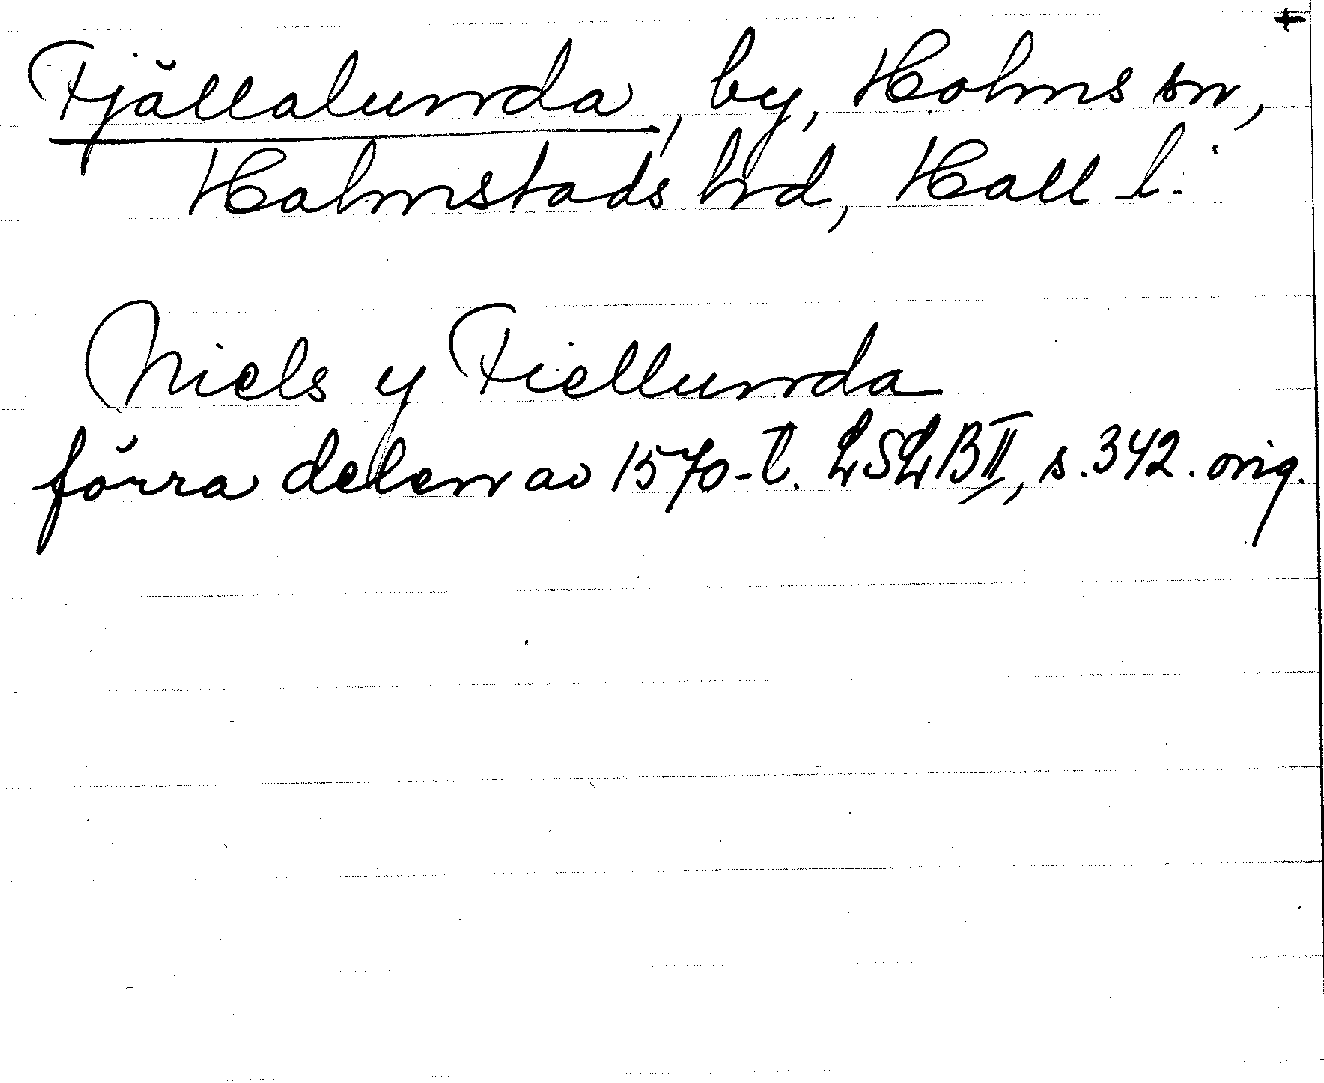 +
Fjällalunda, by, Holms sn,
Halmstads hd, Hall l.
Niels y Fiellunda
förra delen av 1570-t. LSLB II, s. 342. orig.